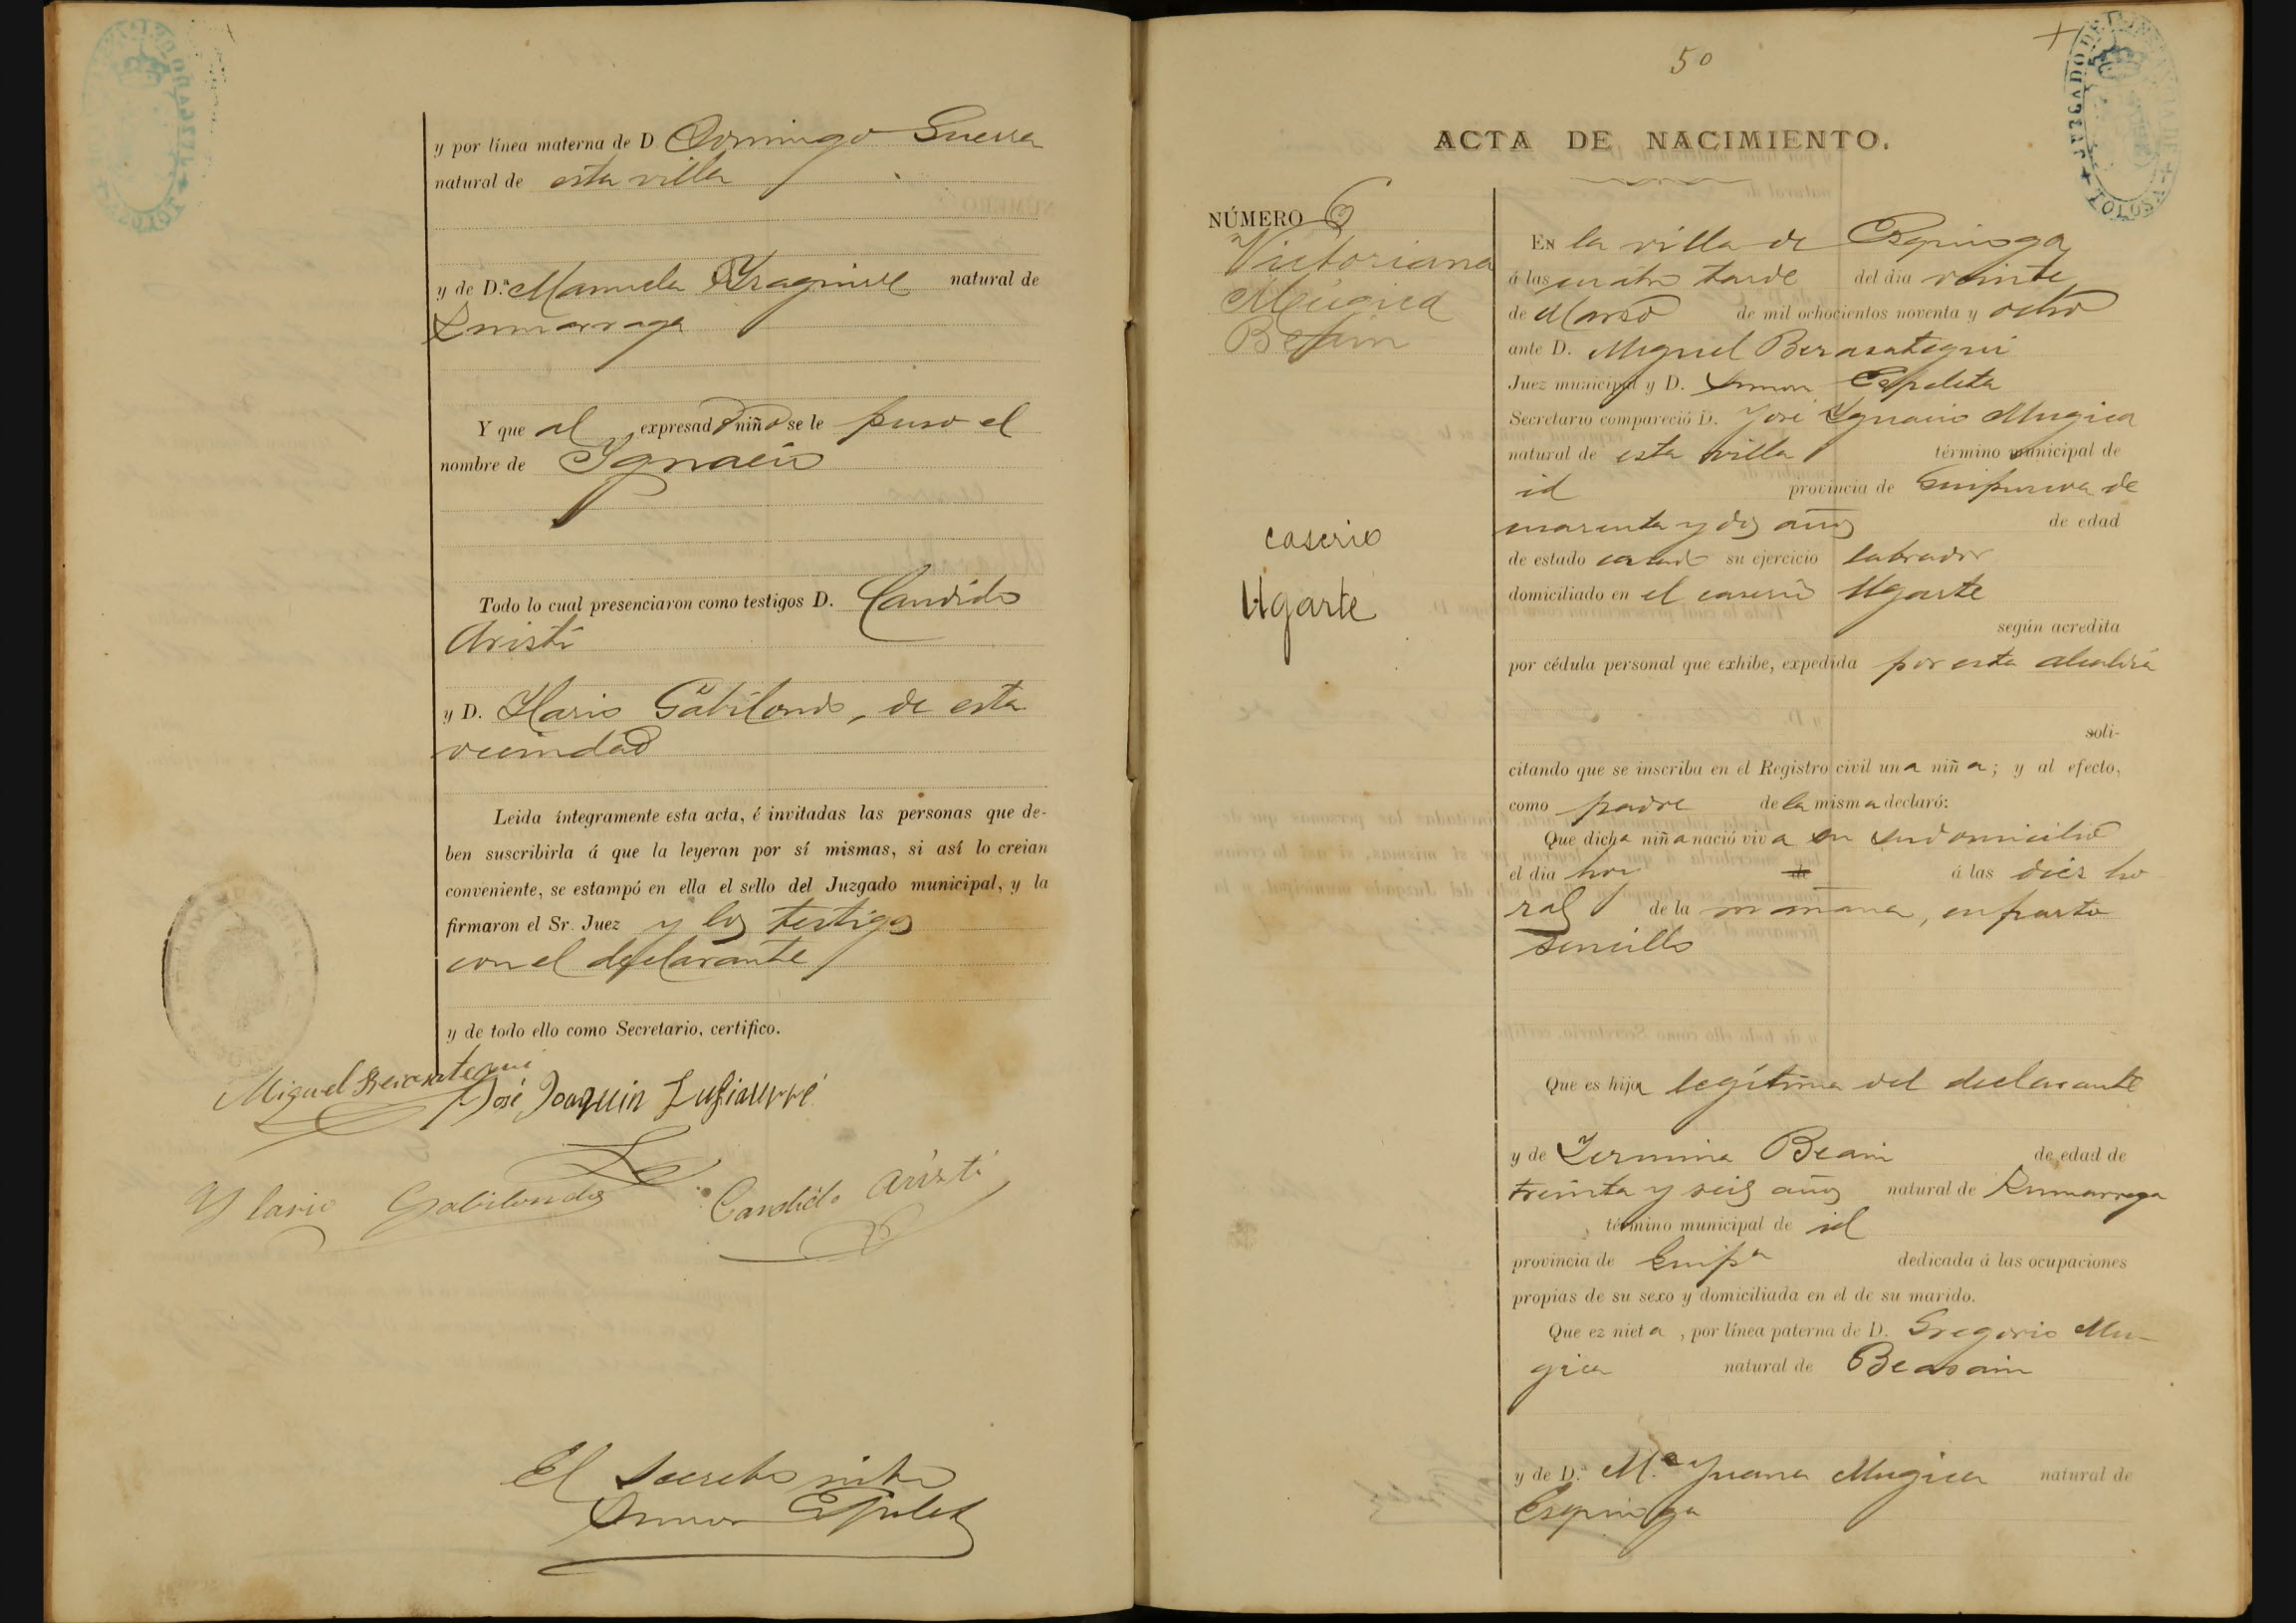 y por línea materna de D Domingo Guerra
natural de esta villa
y de D.ª Manuela natural de
Zumarraga
Y que al expresado niño se le puso el
nombre de Ygnacio
Todo lo cual presenciaron como testigos D. Candido
Aristi
y D. Ylario Gabilondo, de esta
vecindad
Leida íntegramente esta acta, é invitadas las personas que de-
ben suscribirla á que la leyeran por sí mismas, si así lo creian
conveniente, se estampó en ella el sello del Juzgado municipal, y la
firmaron el Sr. Juez y los testigos
con el declarante
y de todo ello como Secretario, certifico.
Miguel Berasategui
José Joaquin
Ylario Gabilondo Candido Aristi
El Secretario
50
JUZGADO DE TOLOSA
ACTA DE NACIMIENTO.
NÚMERO 6
Victoriana
Múgica
caserio
Ugarte
EN la villa de Ezquioga
á las cuatro tarde del dia veinte
de Marzo de mil ochocientos noventa y ocho
ante D. Miguel Berasategui
Juez municipal y D. Ezpeleta
Secretario compareció D. José Ygnacio Mugica
natural de esta villa término municipal de
id provincia de Guipuzcoa de
cuarenta y dos años de edad
de estado casado su ejercicio labrador
domiciliado en el caserio Ugarte
según acredita
por cédula personal que exhibe, expedida por esta alcaldia
soli-
citando que se inscriba en el Registro civil una niña; y al efecto,
como padre de la misma declaró:
Que dicha niña nació viva en su domicilio
el dia hoy de á las diez ho
ras de la mañana, en parto
sencillo
Que es hija legítima del declarante
y de de edad de
treinta y seis años natural de Zumarraga
término municipal de id
provincia de Guipª dedicada á las ocupaciones
propias de su sexo y domiciliada en el de su marido.
Que ez nieta, por línea paterna de D. Gregorio Mu-
gica natural de Beasain
y de D.ª M.ª Juana Mugica natural de
Ezquioga